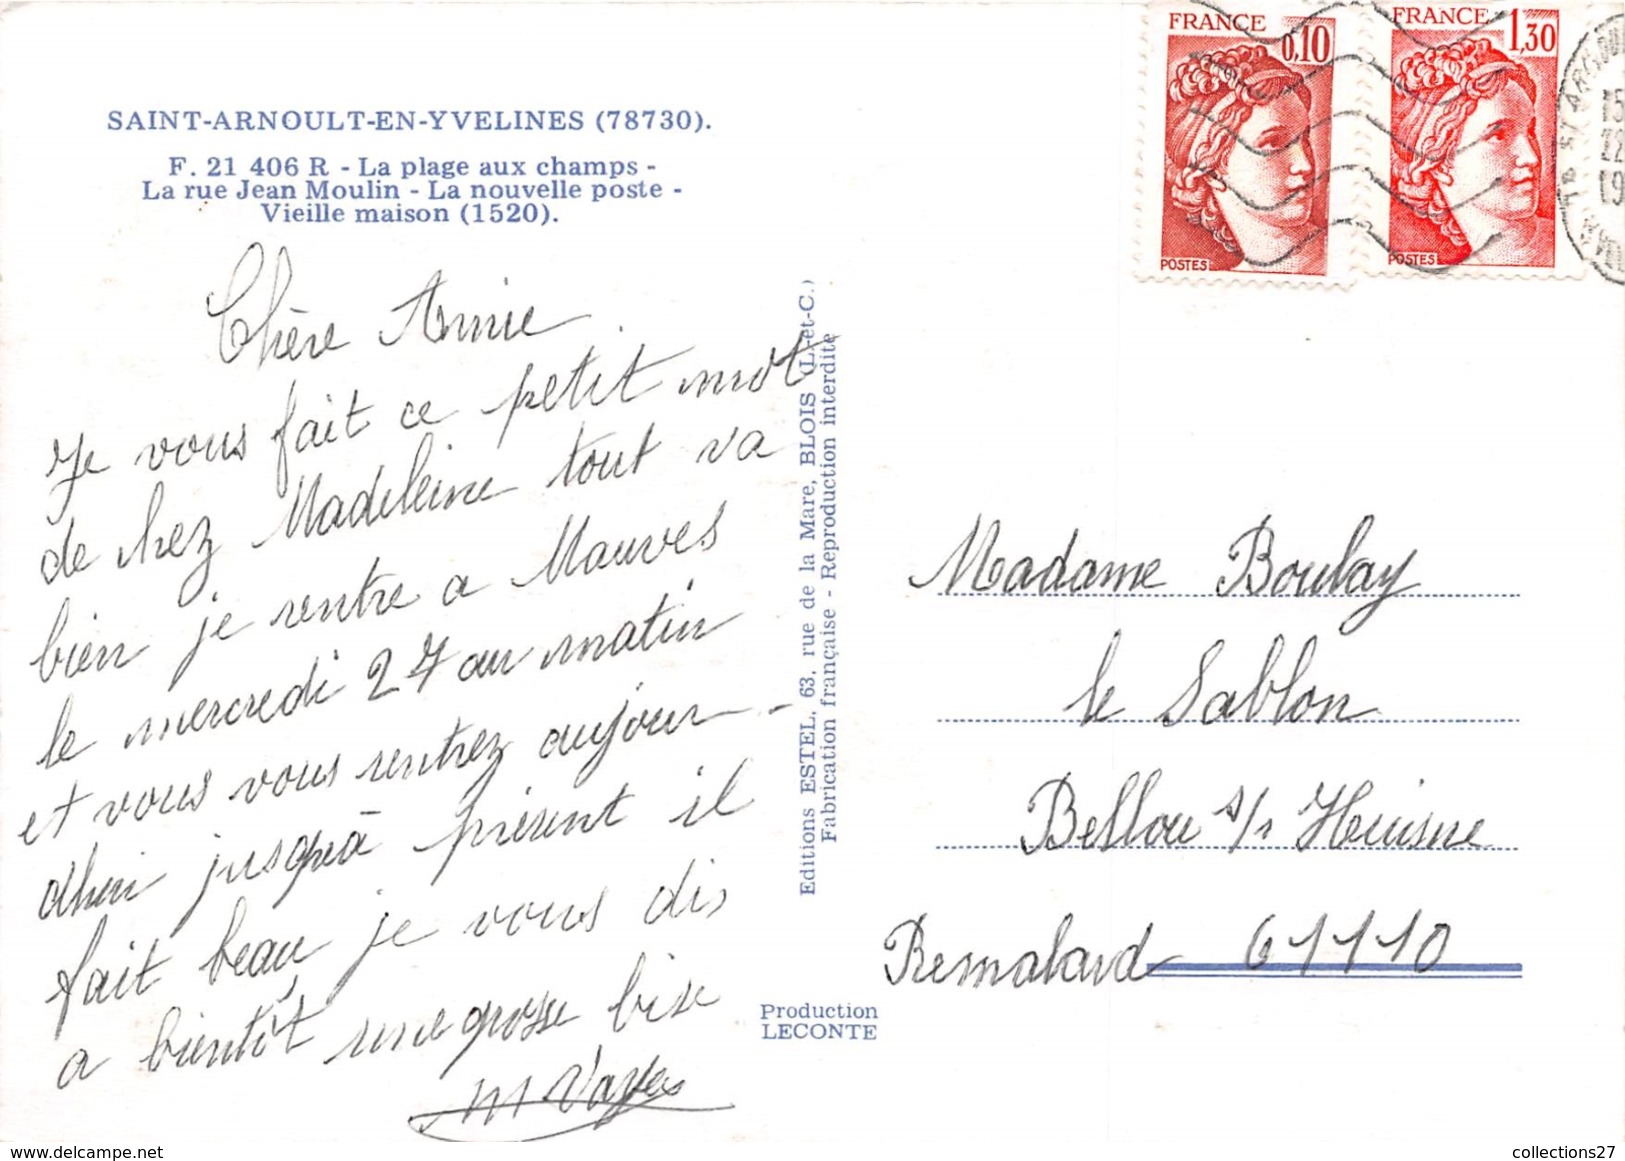 SAINT-ARNOULT-EN-YVELINES (78730).
F. 21 406 R - La plage aux champs -
La rue Jean Moulin - La nouvelle poste -
Vieille maison (1520).
Chère Annie
Je vous fait ce petit mot
de chez Madeleine tout va
bien je rentre a Mauves
le mercredi 27 au matin
et vous vous rentrez aujour-
dhui jusqu'à présent il
fait beau, je vous dis
a bientôt une grosse bise
M
Editions ESTEL, 63, rue de la Mare, BLOIS (L.-et-C.)
Fabrication française - Reproduction interdite
Production
LECONTE
FRANCE
0,10
POSTES
FRANCE
1,30
POSTES
Madame Boulay
le Sablon
Bellou s/r Huisne
Remalard 61110
collections27